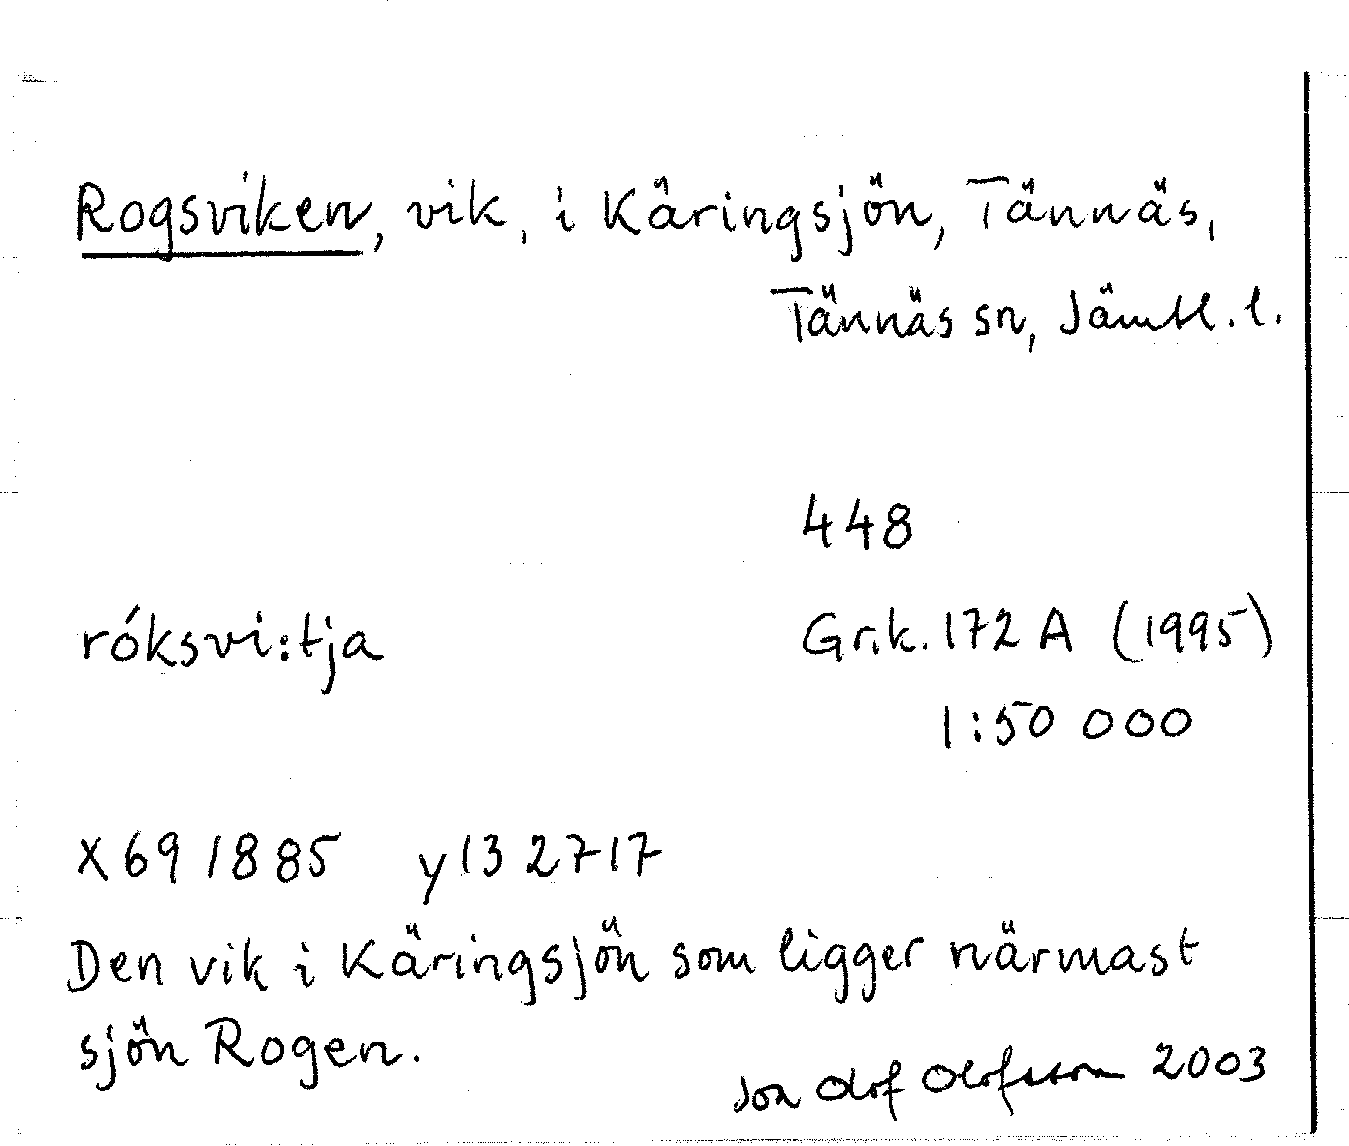 Rogsviken, vik, i Käringsjön, Tännäs,
Tännäs sn, Jämtl. l.
448
róksvi:tja
Gr.k. 172 A (1995)
1:50 000
X691885 y132717
Den vik i Käringsjön som ligger närmast
sjön Rogen.
Jon Olof Olofsson 2003